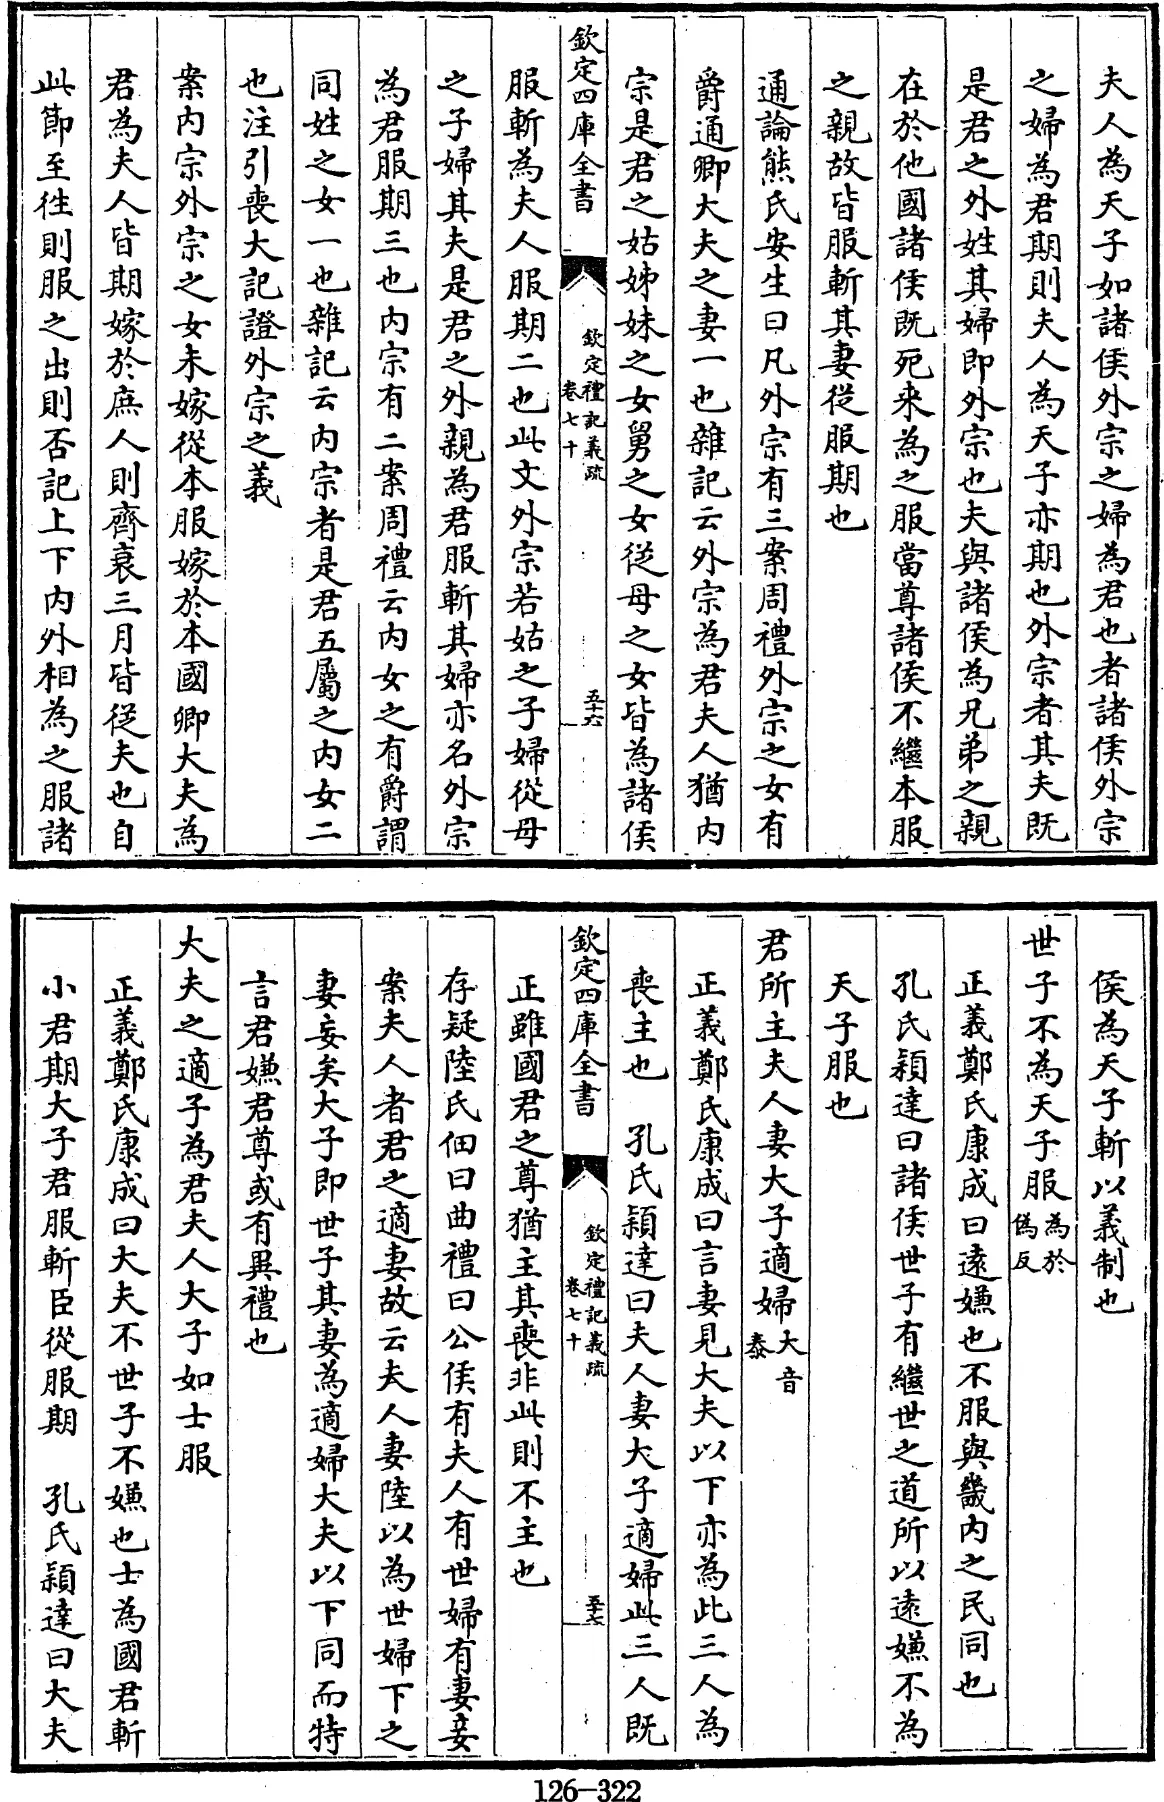 夫人為天子如諸侯外宗之婦為君也者諸侯外宗
之婦為君期則夫人為天子亦期也外宗者其夫既
是君之外姓其婦即外宗也夫與諸侯為兄弟之親
在於他國諸侯既死來為之服當尊諸侯不繼本服
之親故皆服斬其妻從服期也
通論熊氏安生曰凡外宗有三案周禮外宗之女有
爵通卿大夫之妻一也雜記云外宗為君夫人猶内
宗是君之姑姊妹之女舅之女從母之女皆為諸侯
欽定四庫全書
欽定禮記義疏
卷七十
五十六
服斬為夫人服期二也此文外宗若姑之子婦從母
之子婦其夫是君之外親為君服斬其婦亦名外宗
為君服期三也内宗有二案周禮云内女之有爵謂
同姓之女一也雜記云内宗者是君五屬之内女二
也注引喪大記證外宗之義
案内宗外宗之女未嫁從本服嫁於本國卿大夫為
君為夫人皆期嫁於庶人則齊衰三月皆從夫也自
此節至徃則服之出則否記上下内外相為之服諸
侯為天子斬以義制也
世子不為天子服為於偽反
正義鄭氏康成曰遠嫌也不服與畿内之民同也
孔氏穎達曰諸侯世子有繼世之道所以遠嫌不為
天子服也
君所主夫人妻大子適婦大音泰
正義鄭氏康成曰言妻見大夫以下亦為此三人為
喪主也　孔氏穎達曰夫人妻大子適婦此三人既
欽定四庫全書
欽定禮記義疏
卷七十
五十七
正雖國君之尊猶主其喪非此則不主也
存疑陸氏佃曰曲禮曰公侯有夫人有世婦有妻妾
案夫人者君之適妻故云夫人妻陸以為世婦下之
妻妄矣大子即世子其妻為適婦大夫以下同而特
言君嫌君尊或有異禮也
大夫之適子為君夫人大子如士服
正義鄭氏康成曰大夫不世子不嫌也士為國君斬
小君期大子君服斬臣從服期　孔氏穎達曰大夫
126-322